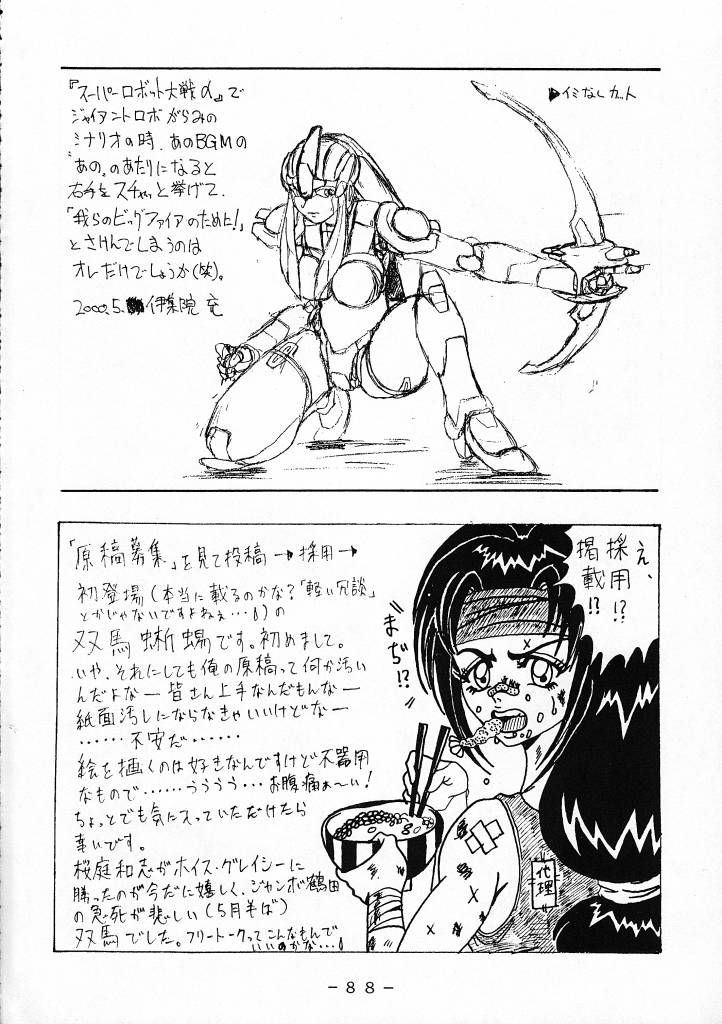 『スーパーロボット大戦α』で
ジャイアントロボがらみの
シナリオの時、あのBGMの
"あの"のあたりになると
右手をスチャッと挙げて、
「我らのビッグファイアのために!」
とさけんでしまうのは
オレだけでしょうか(笑)。
2000.5. 伊集院
▶イミなしカット
「原稿募集」を見て投稿→採用→
初登場(本当に載るのかな?「軽い冗談」
とかじゃないですよねぇ…)の
双馬蜥蜴です。初めまして。
いや、それにしても俺の原稿って何か汚い
んだよなー皆さん上手なんだもんなー
紙面汚しにならなきゃいいけどなー
……不安だ……
絵を描くのは好きなんですけど不器用
なもので……うううう…お腹痛ぁ〜い!
ちょっとでも気に入っていただけたら
幸いです。
桜庭和志がホイス・グレイシーに
勝ったのが今だに嬉しく、ジャンボ鶴田
の急死が悲しい(5月半ば)
双馬でした。フリートークってこんなもんで
いいのかな…
え、
採用!?
掲載!?
まぢ!?
代理
-88-